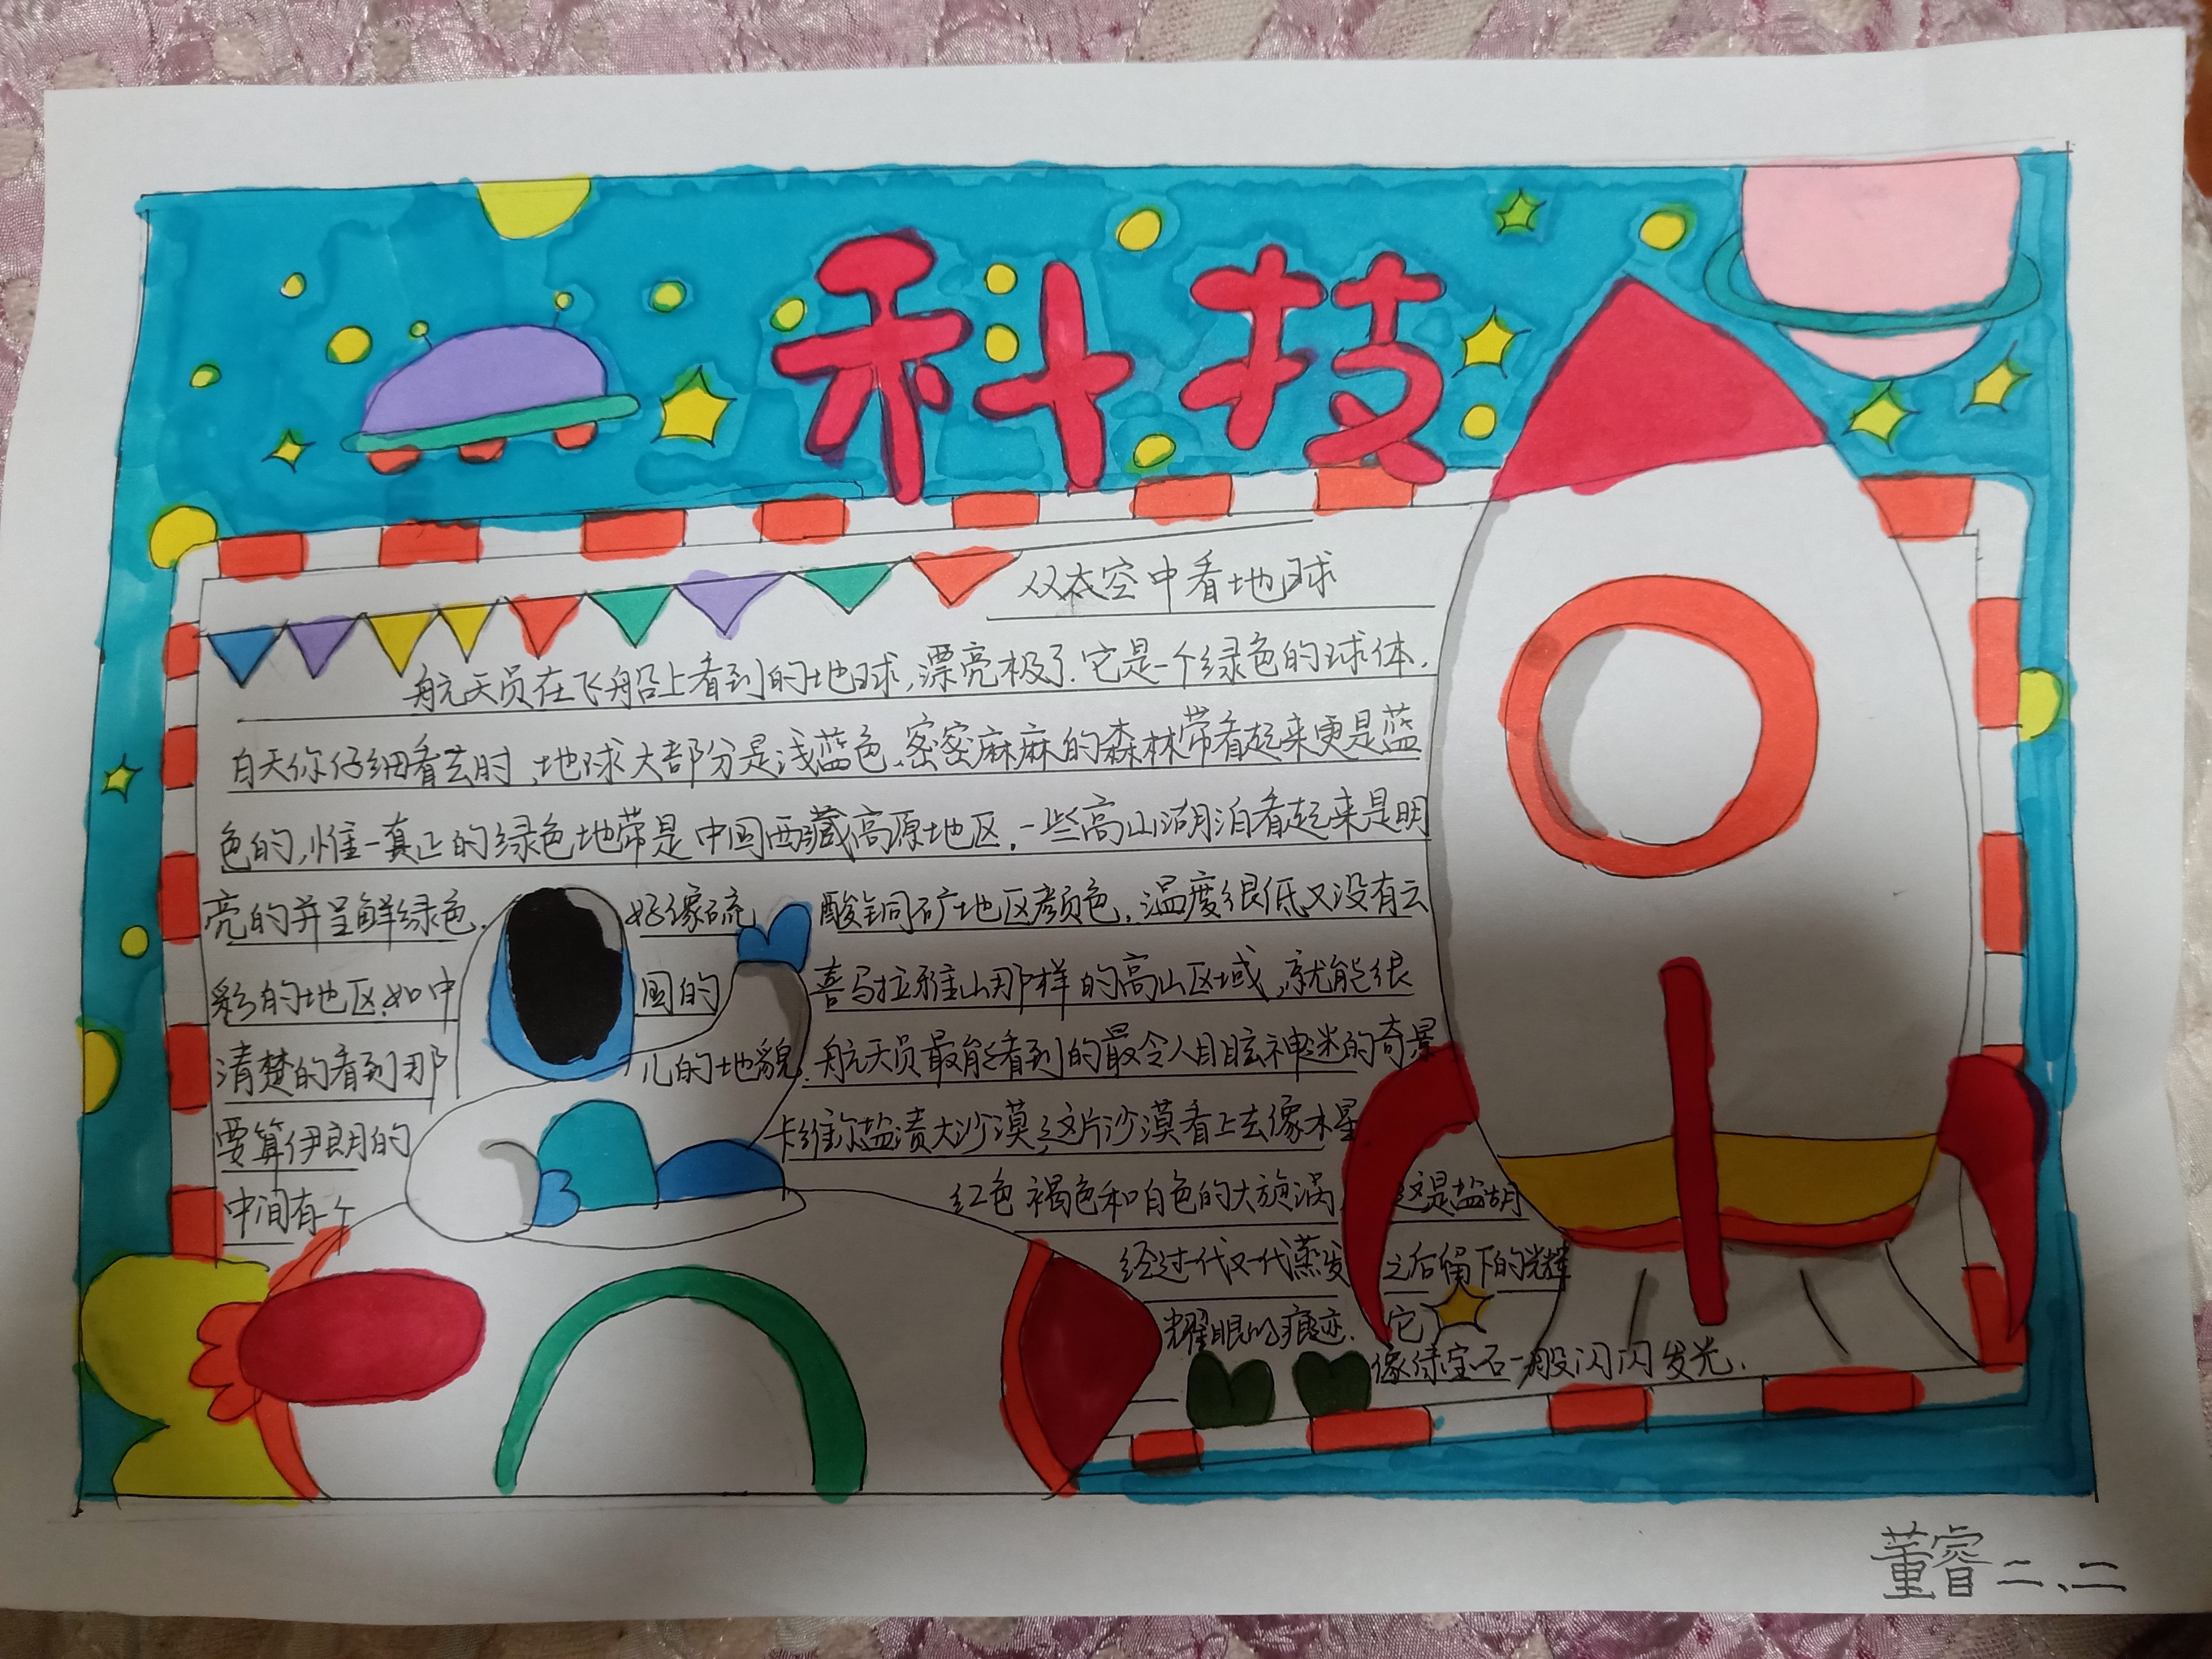 科技
从太空中看地球
航天员在飞船上看到的地球,漂亮极了.它是一个绿色的球体.
白天你仔细看去时,地球大部分是浅蓝色.密密麻麻的森林带看起来更是蓝
色的,惟一真正的绿色地带是中国西藏高原地区.一些高山湖泊看起来是明
亮的并呈鲜绿色.好像硫酸铜矿地区颜色.温度很低又没有云
彩的地区.如中国的喜马拉雅山那样的高山区域,就能很
清楚的看到那儿的地貌.航天员最能看到的最令人目眩神迷的奇景
要算伊朗的卡维尔盐渍大沙漠,这片沙漠看上去像木星
中间有个红色褐色和白色的大旋涡,这是盐湖
经过一代又一代蒸发之后留下的光辉
耀眼的痕迹.它
像绿宝石一般闪闪发光.
董睿二、二